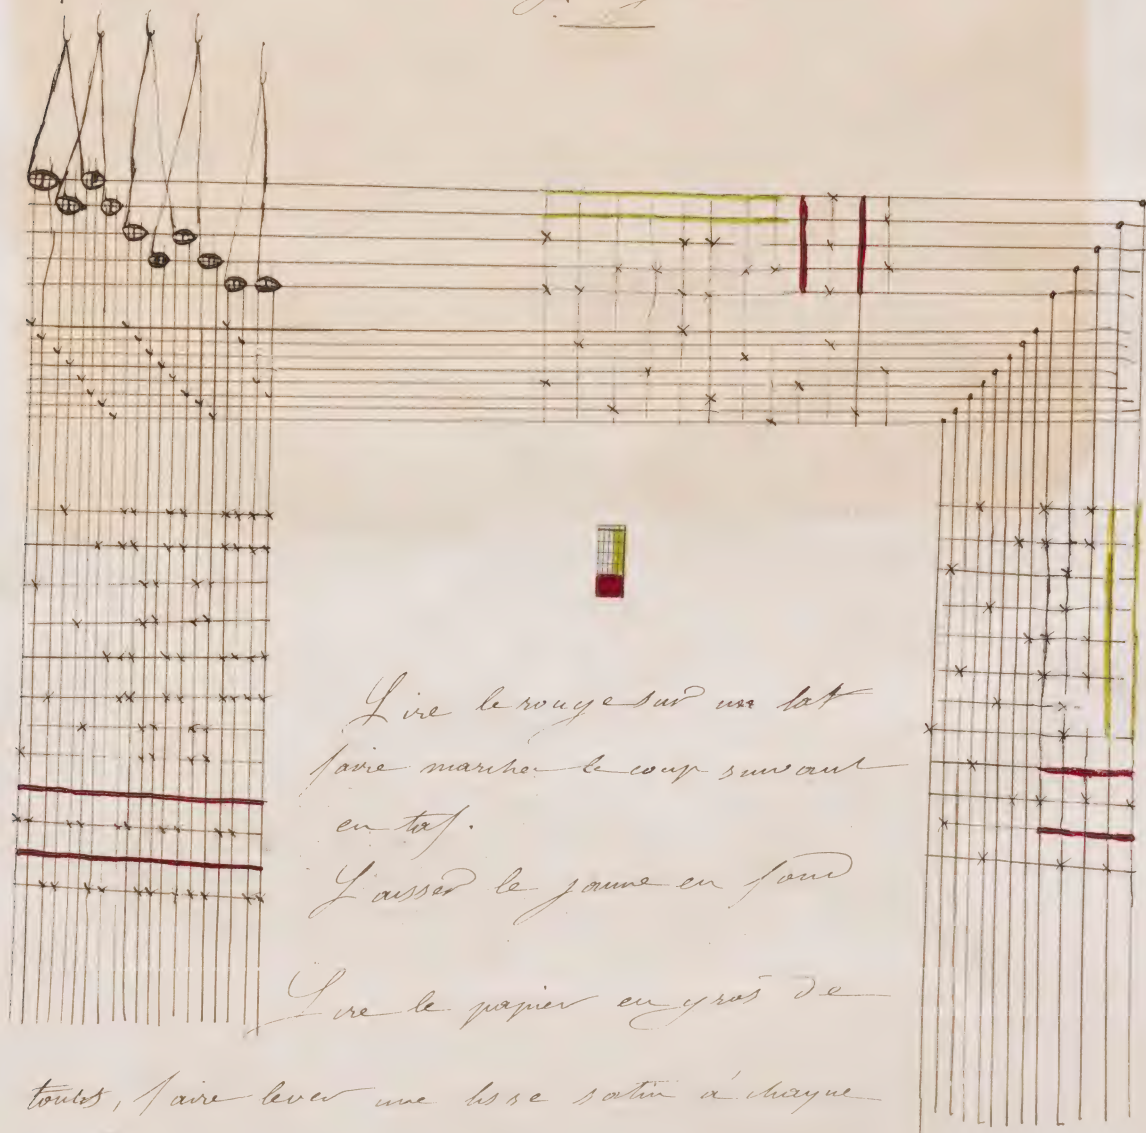 Lire le rouge sur un lat
faire marcher le coup suivant
en taf.
Laisser le jaune en fond
Lire le papier en gros de
tours, faire lever une lisse satin à chaque